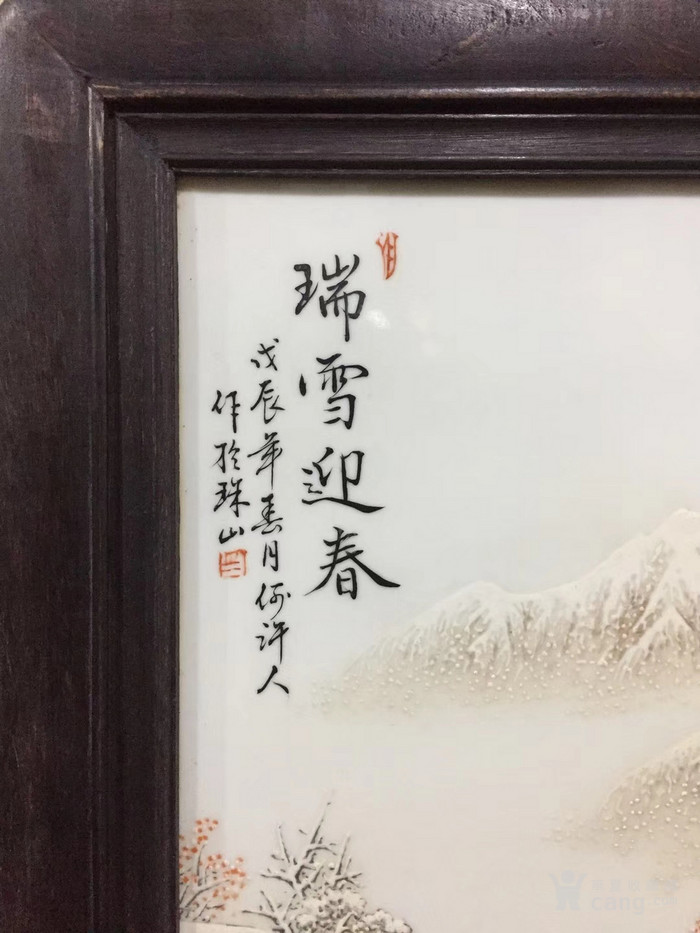 瑞雪迎春
戊辰年春月何许人
作於珠山